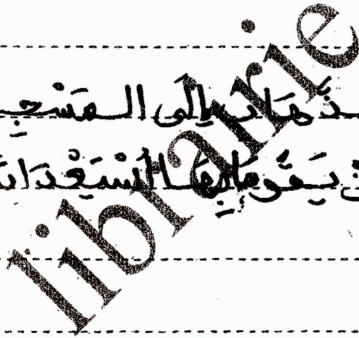 ـذَّهَابِ إِلَى الْمَسْجِـ
يَقُومُ بِهَا اسْتِعْدَادًا
librairie